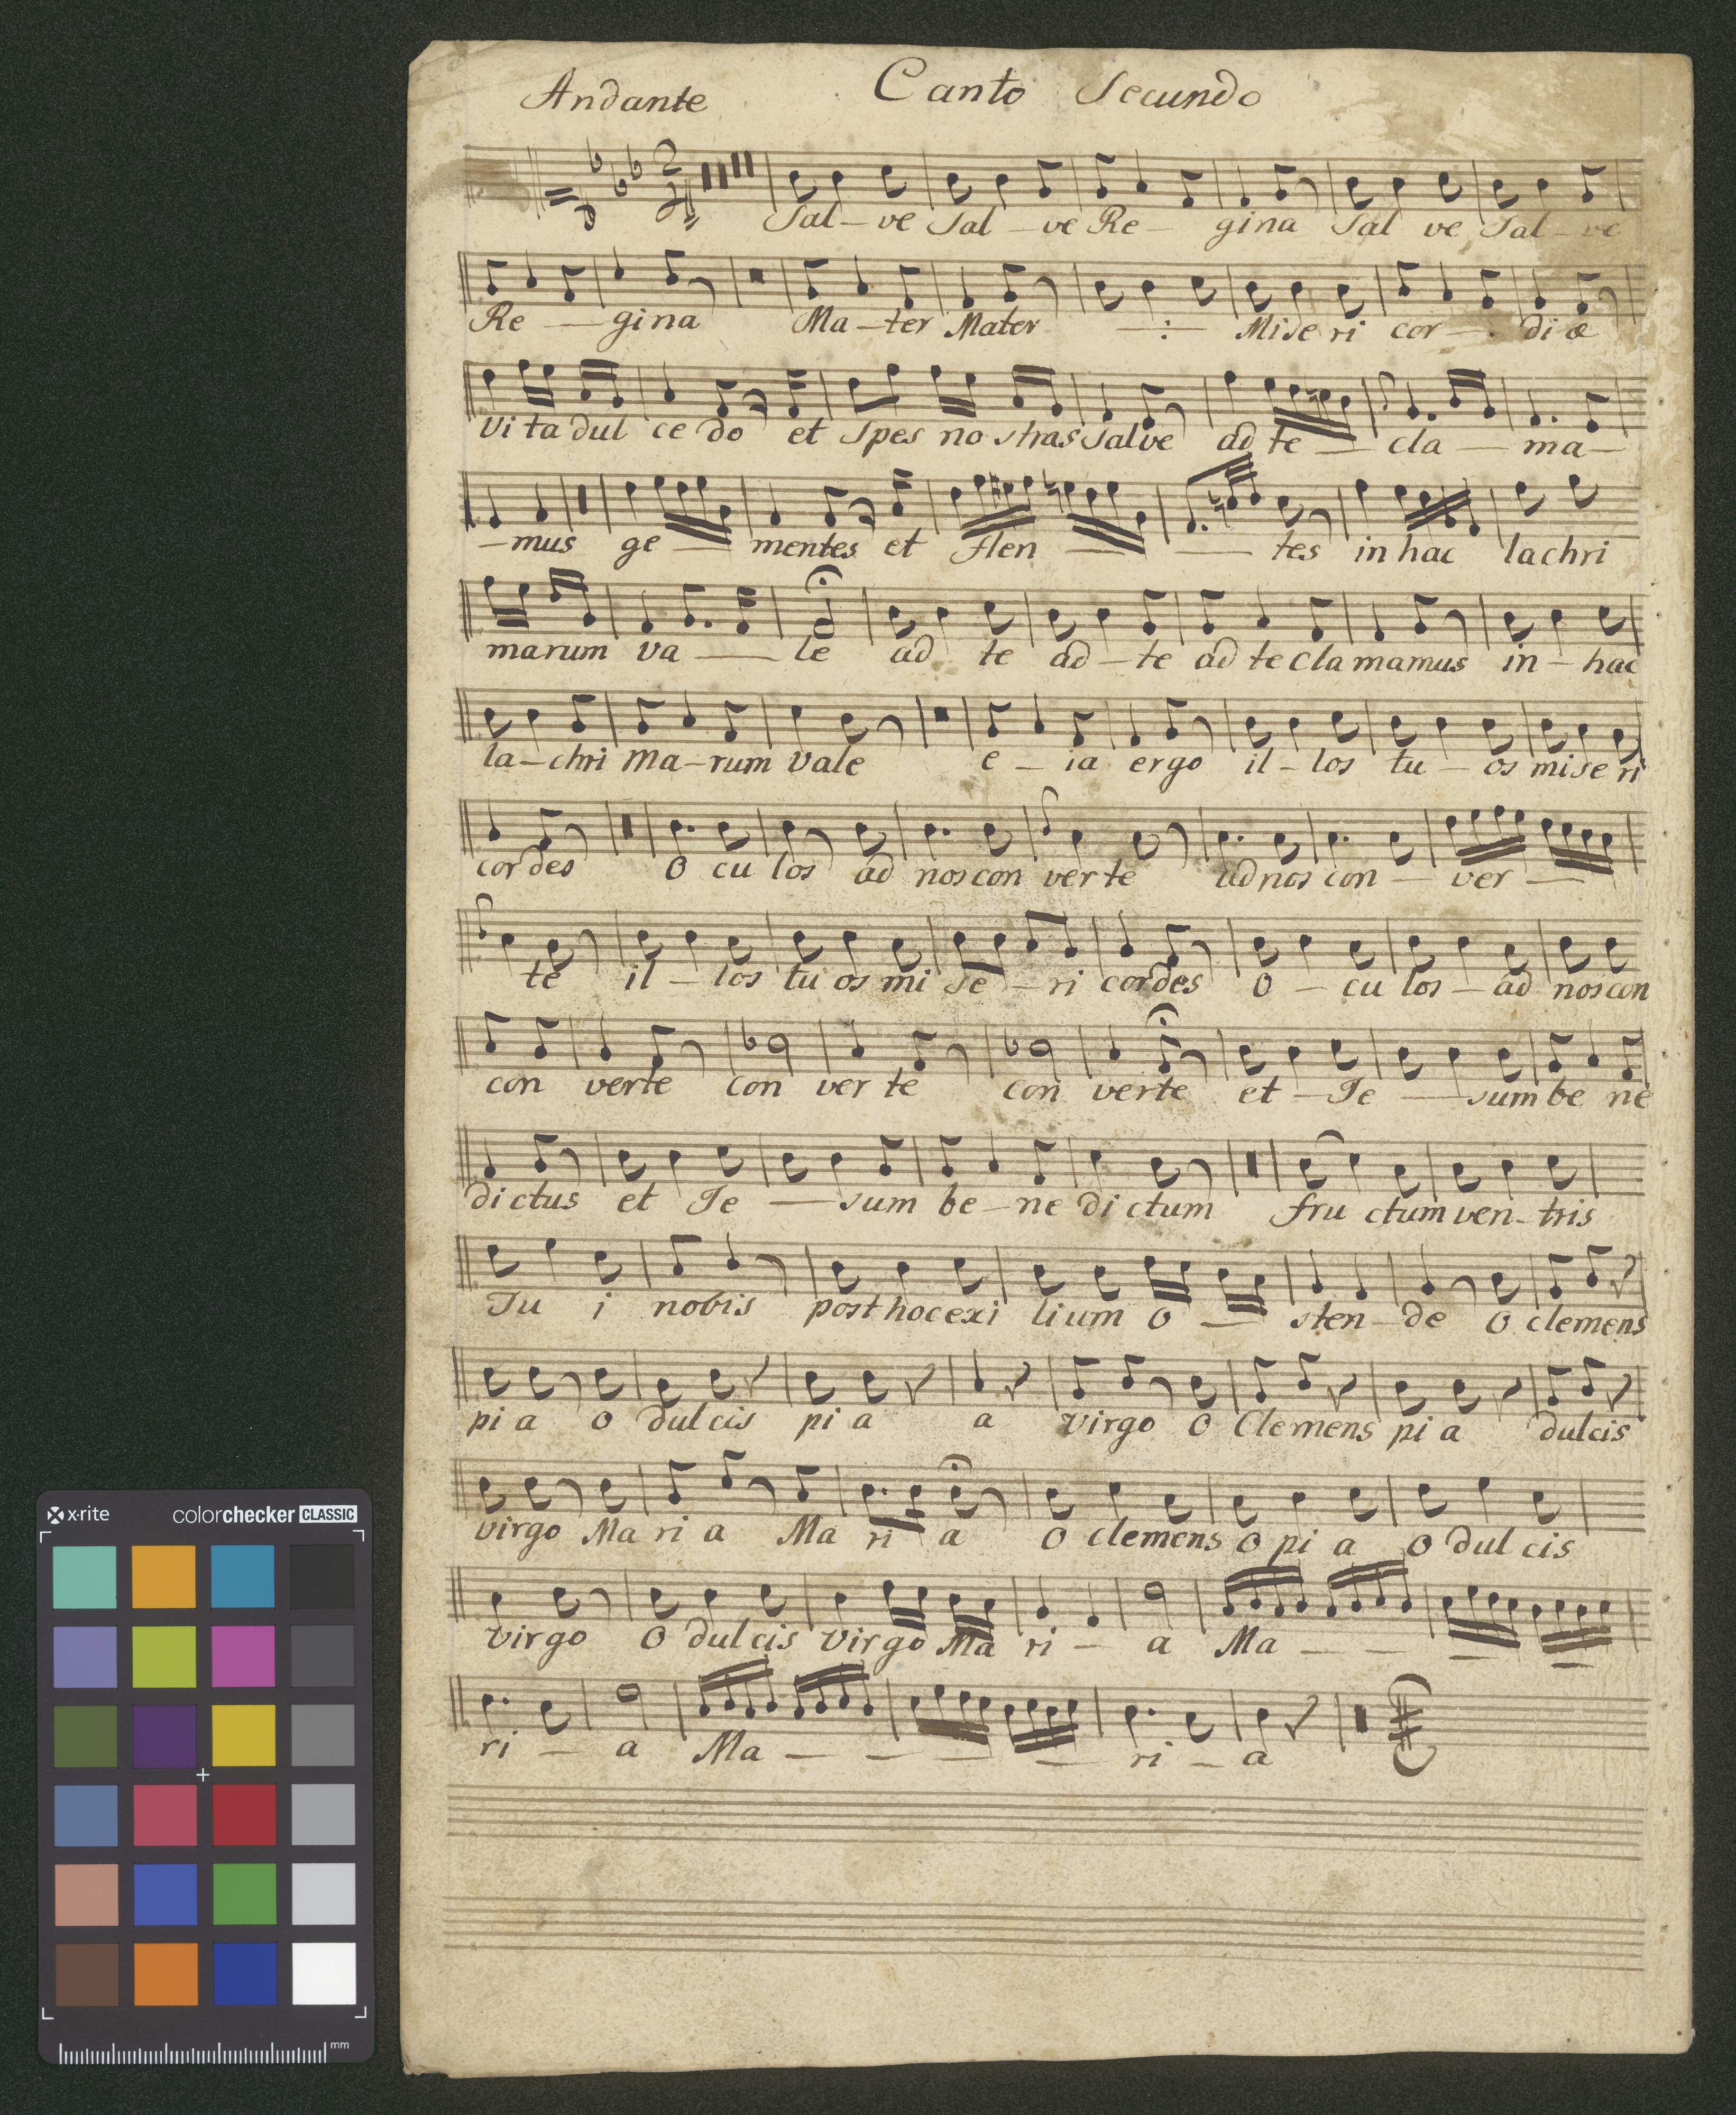 Andante Canto Secundo
Sal – ve Sal – ve Re – gina Sal ve Sal – ve
Re – gina Ma – ter Mater – : – Mise ri cor – di æ
Vi ta dul ce do et Spes no stras salve ad te – cla – ma –
– mus ge – mentes et flen – – tes in hac lachri
marum va – le ad te ad – te ad te clamamus in – hac
la – chri ma – rum vale e – ia ergo il – los tu – os mise ri
cordes O cu los ad nos con verte ad nos con – ver –
te il – los tu os mi se – ri cordes O – cu los – ad nos con
con verte con ver te con verte et – Je – sum be ne
dictus et Je – sum be – ne dictum fru ctum ven – tris
Tu i nobis post hoc exi lium O – sten – de O clemens
pi a o dulcis pi a a virgo O Clemens pi a dulcis
virgo Ma ri a Ma ri a O clemens O pi a O dul cis
virgo O dulcis virgo Ma ri – a Ma – – – –
ri – a Ma – – – – ri – a
x·rite colorchecker CLASSIC
mm